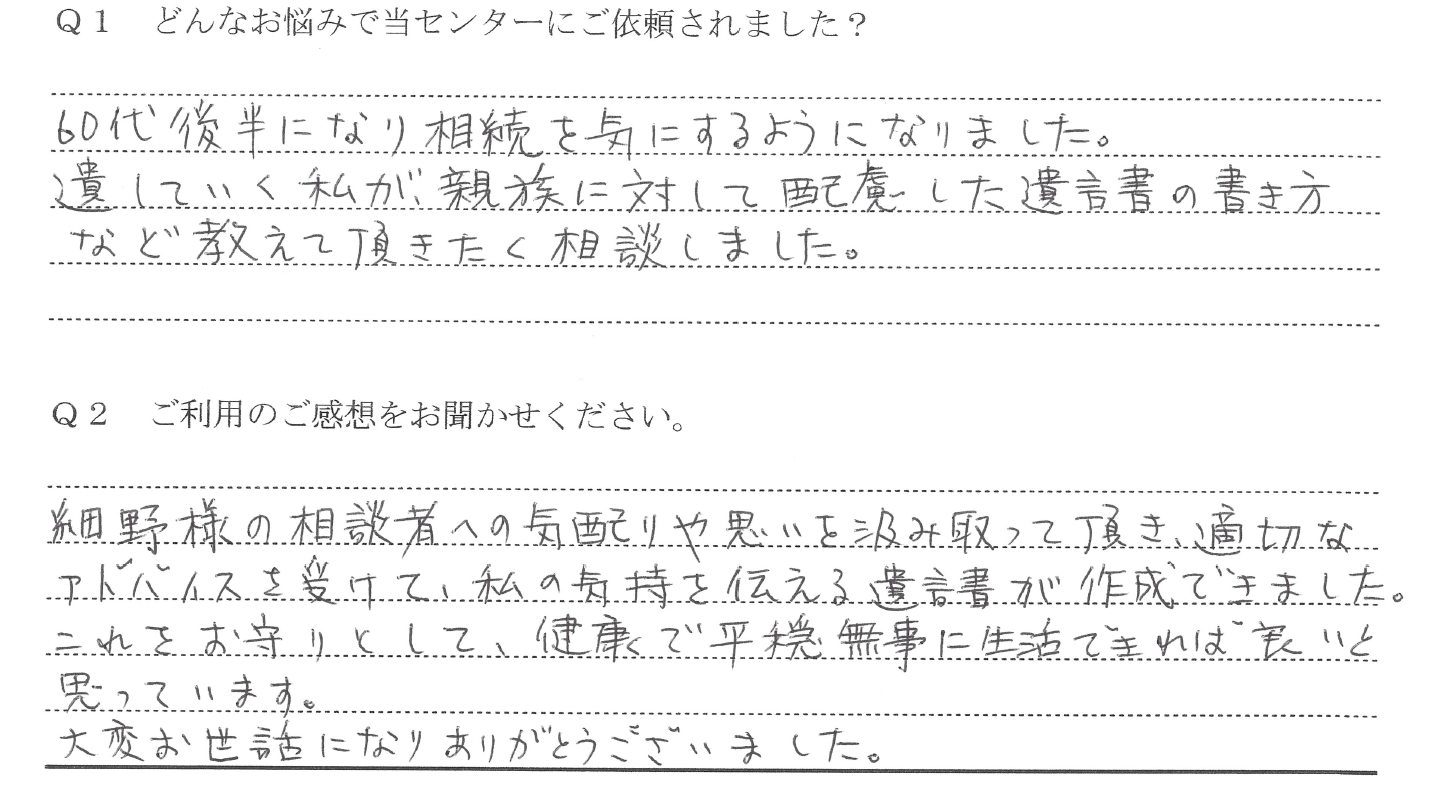 Q1 どんなお悩みで当センターにご依頼されました?
60代後半になり相続を気にするようになりました。
遺していく私が、親族に対して配慮した遺言書の書き方
など教えて頂きたく相談しました。
Q2 ご利用のご感想をお聞かせください。
細野様の相談者への気配りや思いを汲み取って頂き、適切な
アドバイスを受けて、私の気持を伝える遺言書が作成できました。
これをお守りとして、健康で平穏無事に生活できれば良いと
思っています。
大変お世話になりありがとうございました。